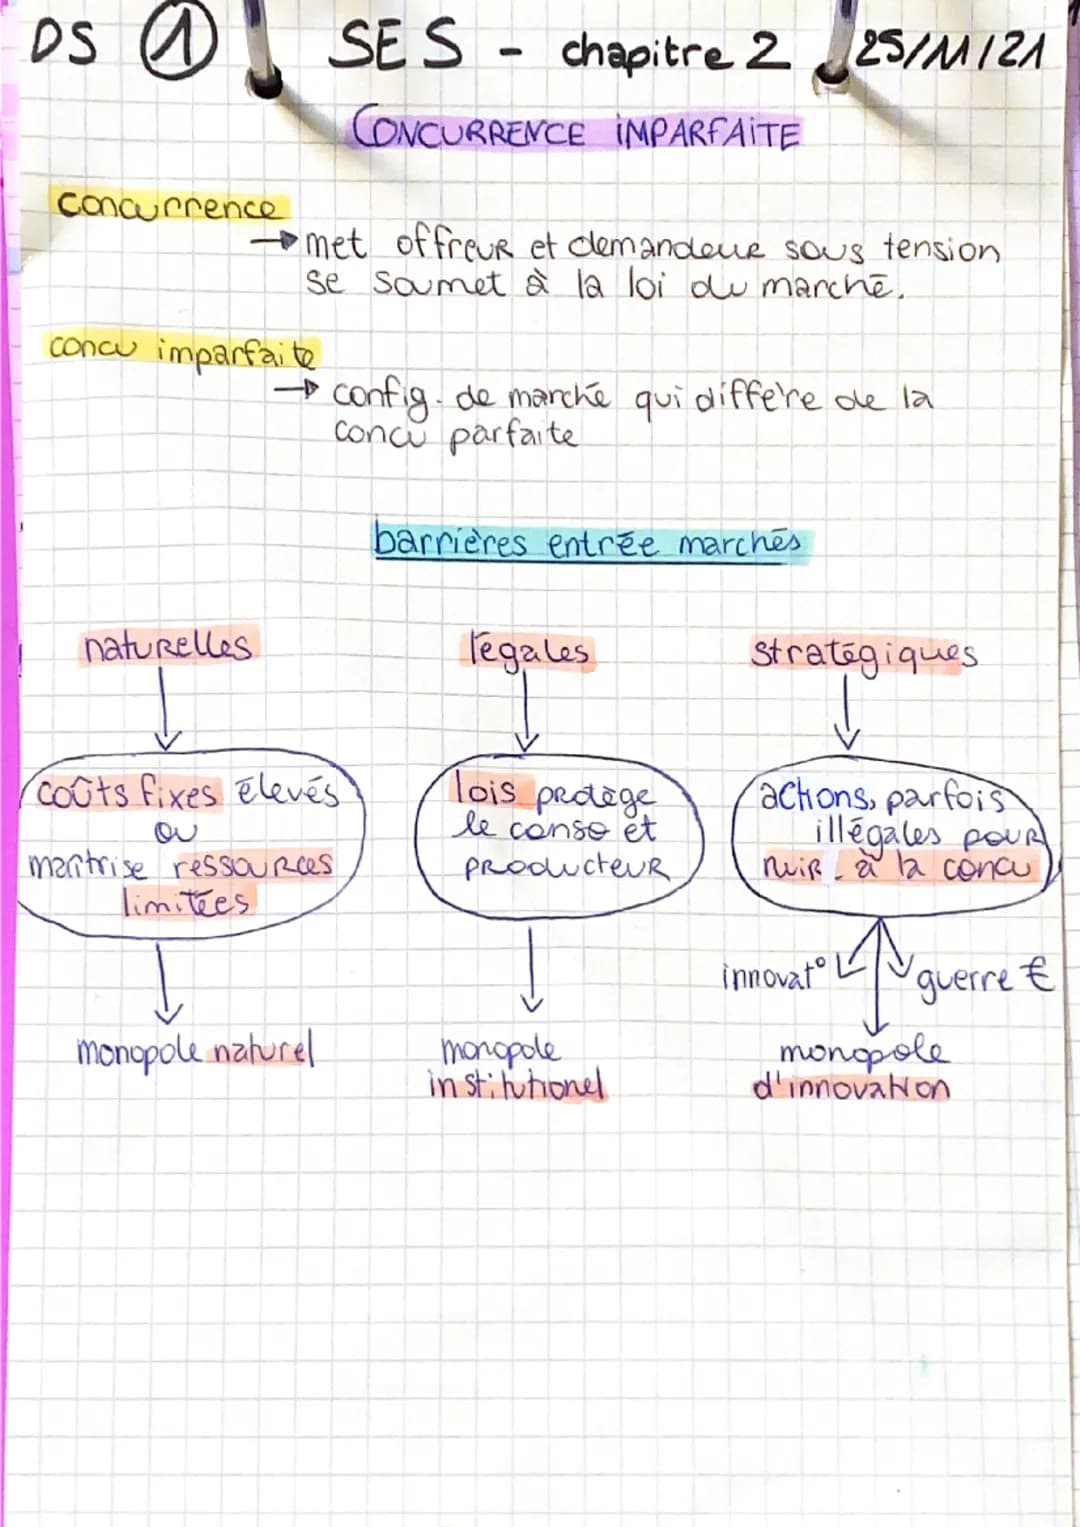 DS ① SES - chapitre 2 25/11/21
CONCURRENCE IMPARFAITE
concurrence
→ met offreur et demandeur sous tension
se soumet à la loi du marché.
concu imparfaite
→ config. de marché qui diffère de la
concu parfaite
barrières entrée marchés
naturelles
légales
stratégiques
coûts fixes élevés
ou
maîtrise ressources
limitées
lois protège
le conso et
producteur
actions, parfois
illégales pour
nuir à la concu
innovat°
guerre €
monopole naturel
monopole
institutionel
monopole
d'innovation